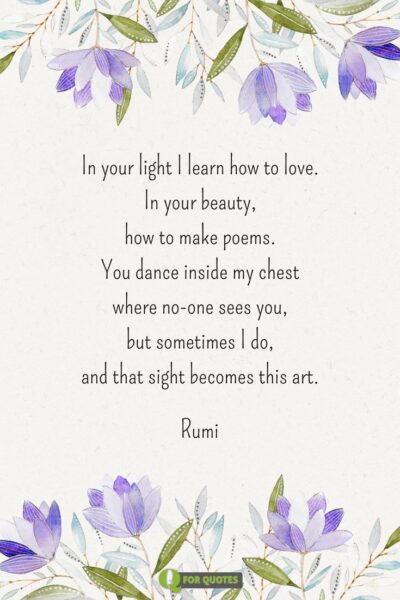 In your light I learn how to love.
In your beauty,
how to make poems.
You dance inside my chest
where no-one sees you,
but sometimes I do,
and that sight becomes this art.
Rumi
FOR QUOTES